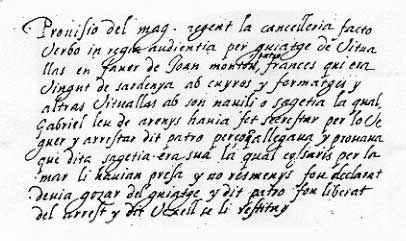 Provisio del mag. regent la cancelleria facto
verbo in regia audientia per guiatge de vitua
llas en favor de Joan monton patro frances qui era
vingut de sardenya ab cuyros y formatges y
altras vituallas ab son navili o sagetia la qual
Gabriel leu de arenys havia fet secrestar per lo ve
guer y arrestar dit patro perço allegava y provava
qui dita sagetia era sua la qual cossaris per la
mar li havian presa y no resmenys fou declarat
devia gozar del guiatge y dit patro fou liberat
del arrest y dit vexell se li restituy